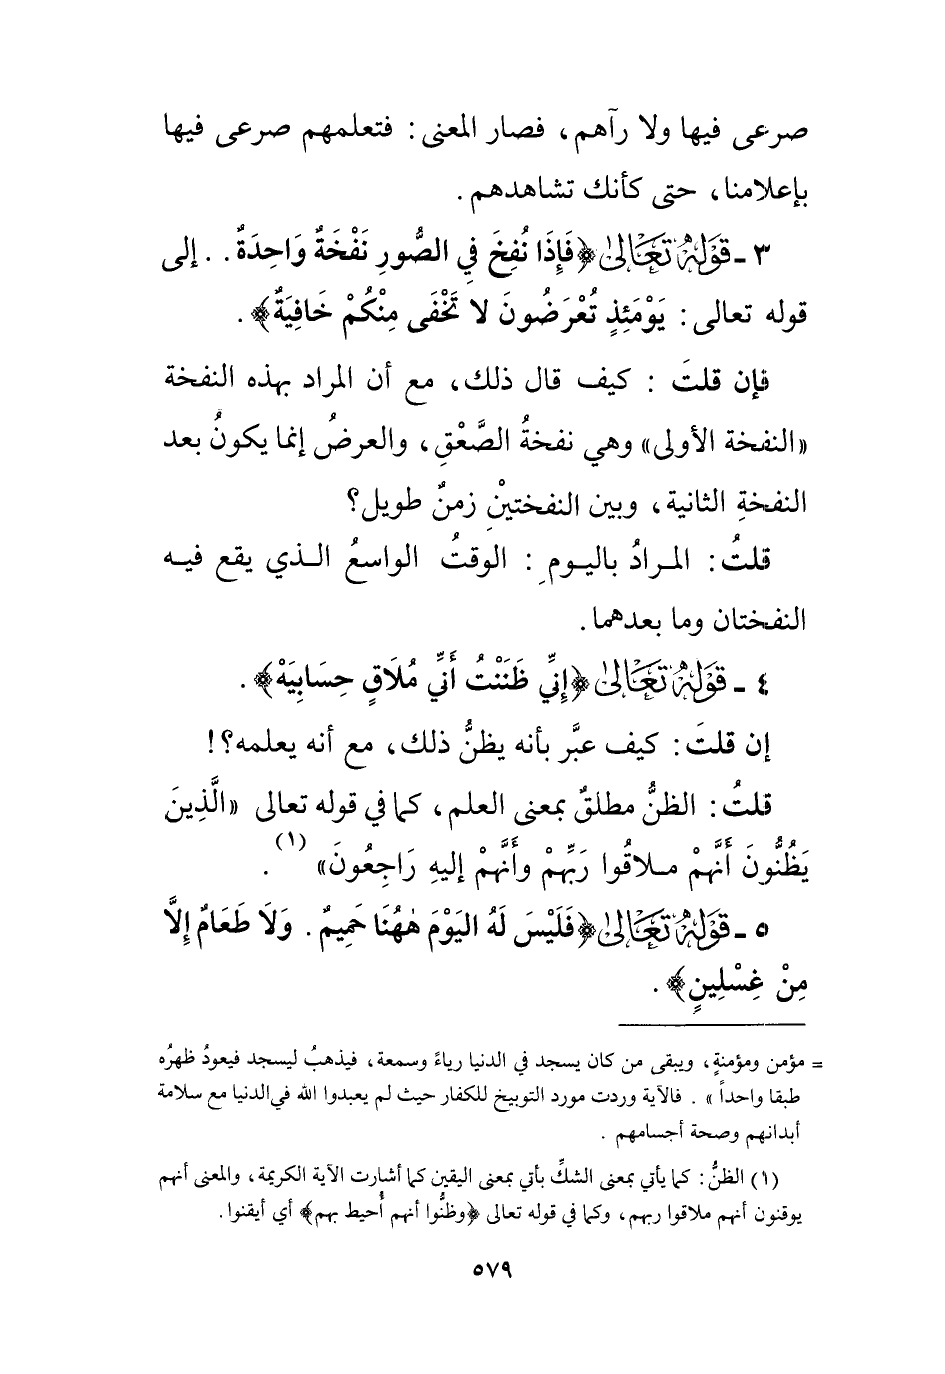 صرعى فيها ولا رآهم، فصار المعنى: فتعلمهم صرعى فيها
بإعلامنا، حتى كأنك تشاهدهم.
٣ ـ قَوْلُهُ تَعَالَىٰ ﴿فَإِذَا نُفِخَ فِي الصُّورِ نَفْخَةٌ وَاحِدَةٌ. . إلى
قوله تعالى: يَوْمَئِذٍ تُعْرَضُونَ لا تَخْفَى مِنْكُمْ خَافِيَةٌ﴾.
فإن قلتَ : كيف قال ذلك، مع أن المراد بهذه النفخة
«النفخة الأولى» وهي نفخةُ الصَّعْقِ، والعرضُ إنما يكونُ بعد
النفخةِ الثانية، وبين النفختيْنِ زمنٌ طويل؟
قلتُ: المرادُ باليومِ : الوقتُ الواسعُ الذي يقع فيه
النفختان وما بعدهما.
٤ ـ قَوْلُهُ تَعَالَىٰ ﴿إِنِّي ظَنَنْتُ أَنِّي مُلَاقٍ حِسَابِيَهْ﴾.
إن قلتَ: كيف عبَّر بأنه يظنُّ ذلك، مع أنه يعلمه؟!
قلتُ: الظنُّ مطلقٌ بمعنى العلم، كما في قوله تعالى «الَّذِينَ
يَظُنُّونَ أَنَّهمْ ملاقُوا رَبِّهمْ وأَنَّهمْ إليهِ رَاجِعُونَ» (١) .
٥ ـ قَوْلُهُ تَعَالَىٰ ﴿فَلَيْسَ لَهُ اليَوْمَ هٰهُنَا حَمِيمٌ. وَلَا طَعَامٌ إِلَّا
مِنْ غِسْلِينٍ﴾.
= مؤمن ومؤمنةٍ، ويبقى من كان يسجد في الدنيا رياءً وسمعة، فيذهبُ ليسجد فيعودُ ظهرُه
طبقا واحداً» . فالآية وردت مورد التوبيخ للكفار حيث لم يعبدوا الله في الدنيا مع سلامة
أبدانهم وصحة أجسامهم .
(١) الظنُّ: كما يأتي بمعنى الشكِّ يأتي بمعنى اليقين كما أشارت الآية الكريمة، والمعنى أنهم
يوقنون أنهم ملاقوا ربهم، وكما في قوله تعالى ﴿وظنُّوا أنهم أُحيط بهم﴾ أي أيقنوا.
٥٧٩